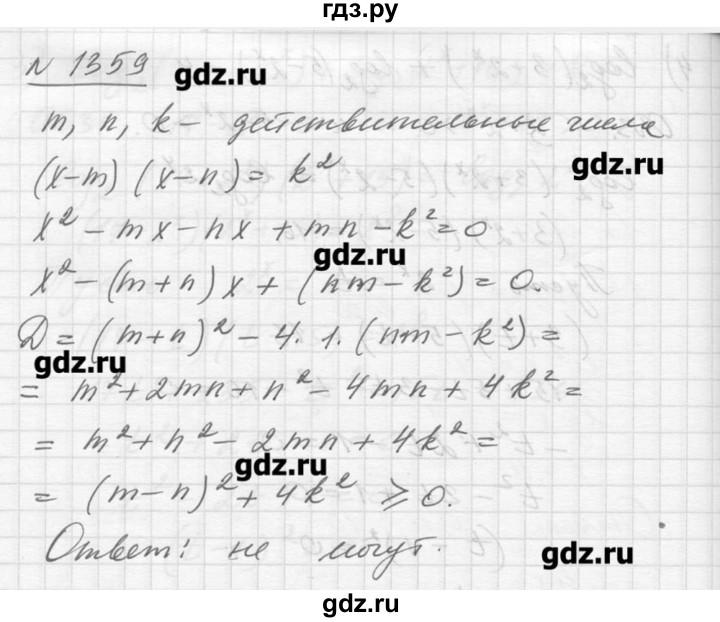 гдз.ру
№ 1359
gdz.ru
m, n, k – действительные числа
gdz.ru
(x-m) (x-n) = k²
x² - mx - nx + mn - k² = 0
gdz.ru
x² - (m+n)x + (nm - k²) = 0.
D = (m+n)² - 4·1·(nm - k²) =
gdz.ru
= m² + 2mn + n² - 4mn + 4k² =
= m² + n² - 2mn + 4k² =
gdz.ru
= (m-n)² + 4k² ⩾ 0.
Ответ: не могут.
gdz.ru
gdz.ru